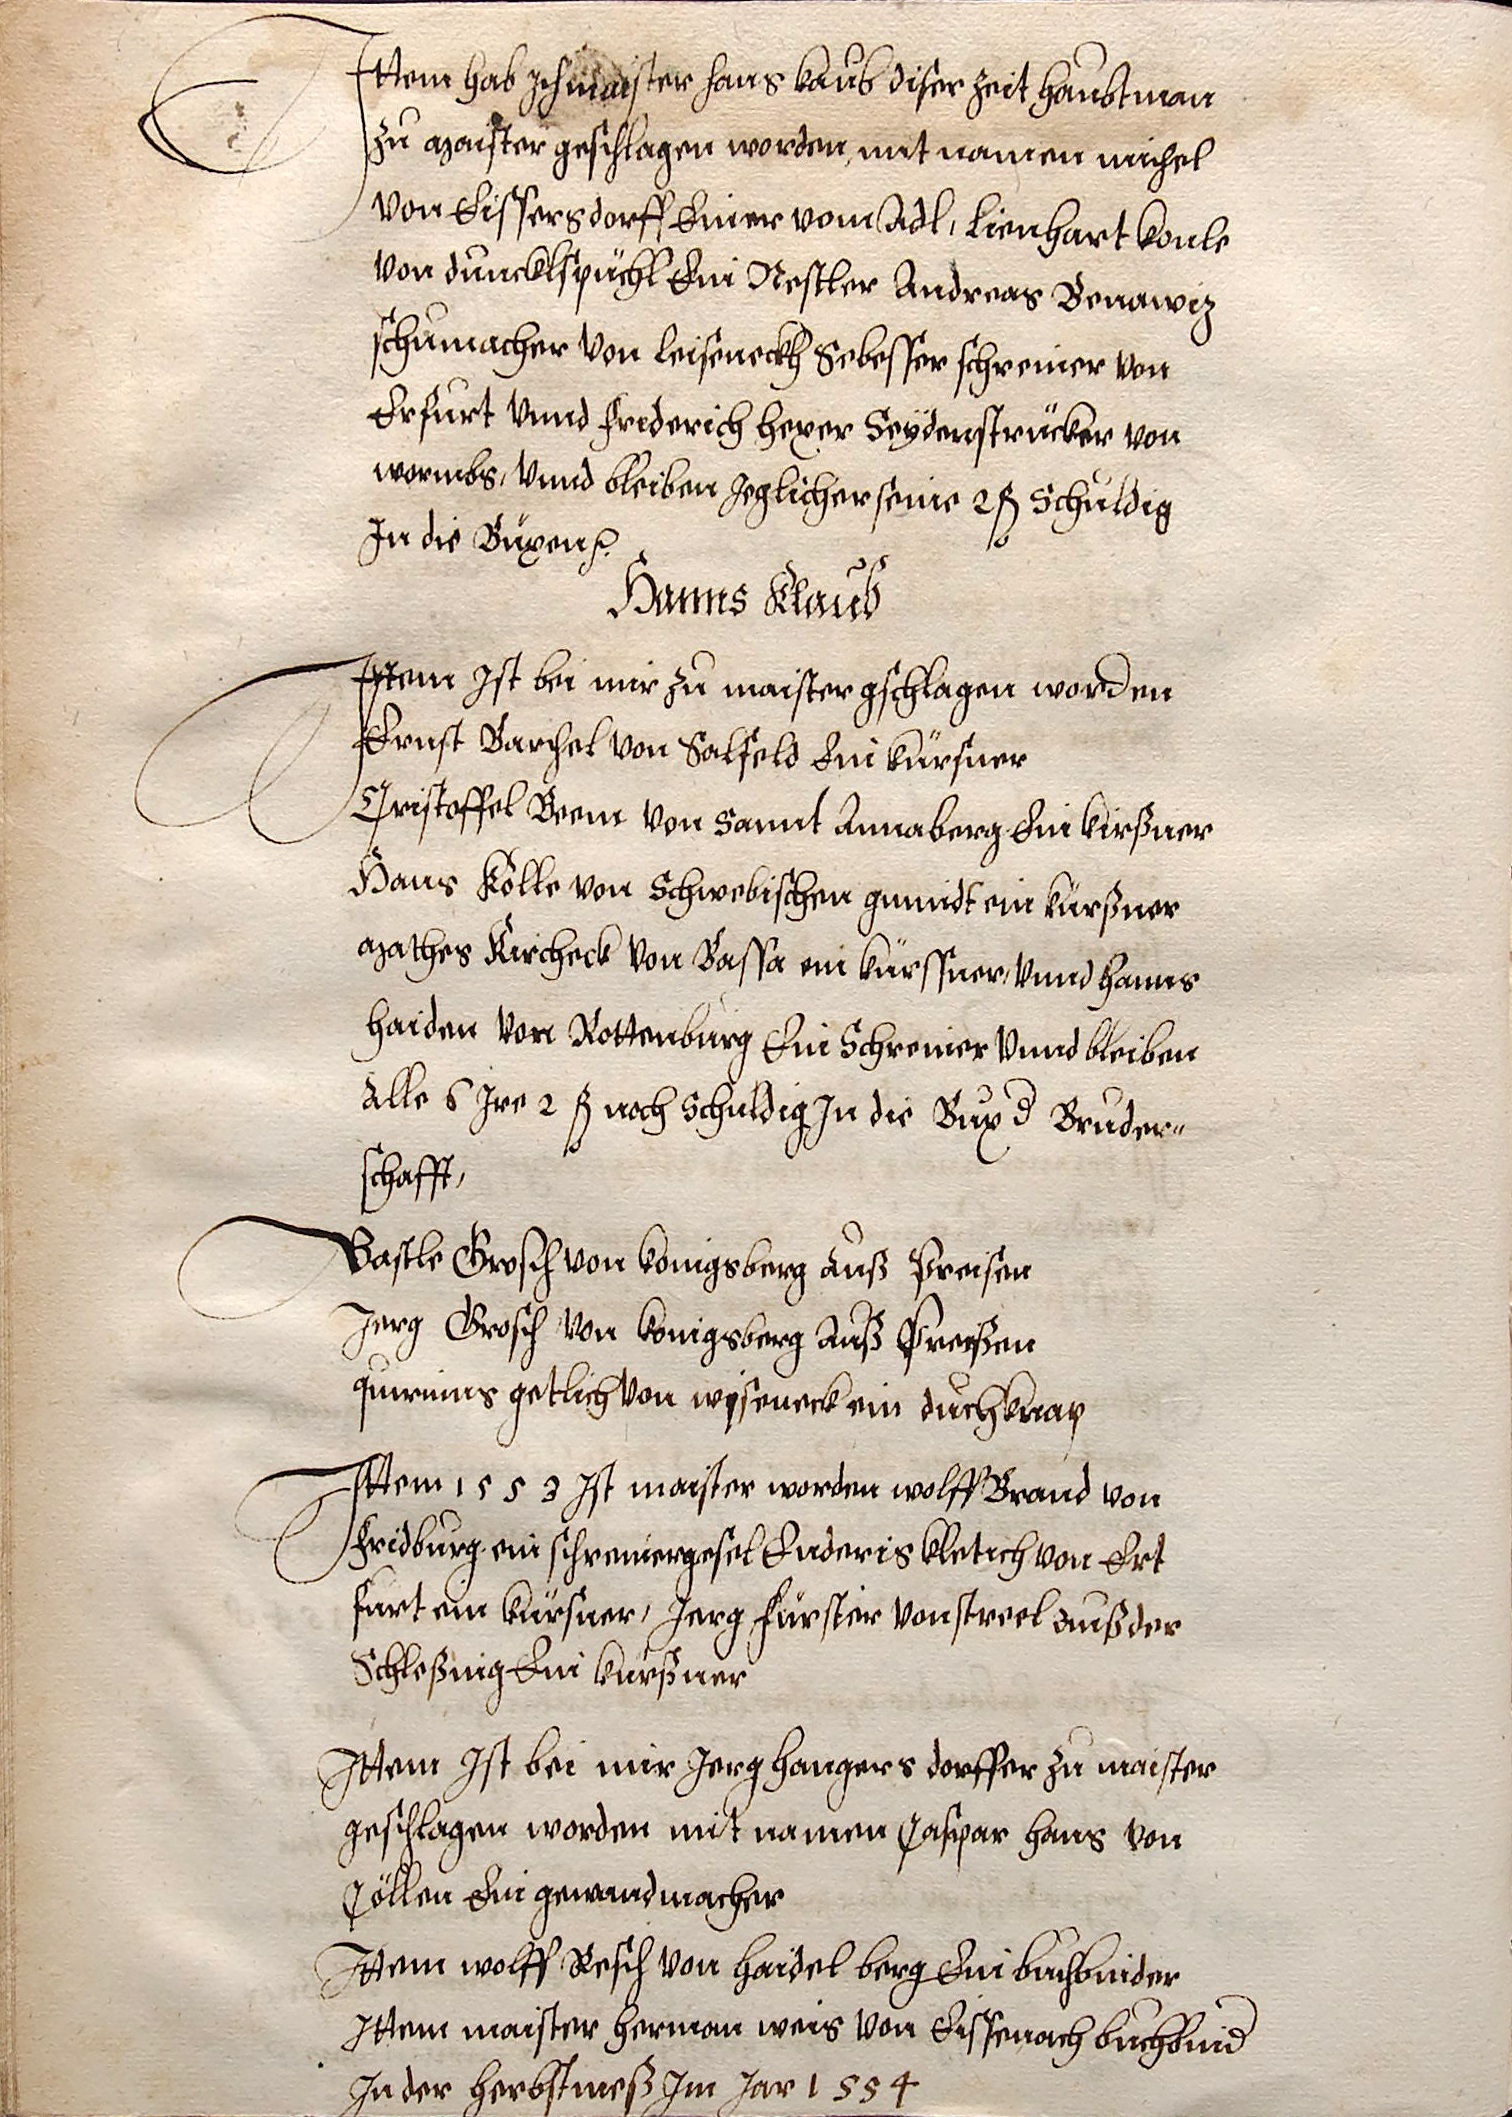 Ittem hab Ich maister hans klaub diser zeit haubtman
zu maister geschlagen worden, mit namen michel
von Eissersdorff Einer vom Adl, Lienhart konle
von dunckhlspüchl Ein Nestler Andreas Benawiz
schumacher von leiseneckh Sebesser schreiner von
Erfurt Vnnd friderich hexer Seydenstrücker von
wormbs, Vnnd bleiben Jeglicher seine 2 ß Schuldig
In die Büxen
Hanns Klaub
Ittem Ist bei mir zu maister gschlagen worden
Ernst Barchel von Salfeld Ein kürsner
Cristoffel Beem von Sannt Annaberg Ein kirßner
Hans Kölle von Schwebischen gmündt ein kürßner
mathes Kircheck von Bassa ein kürssner, Vnnd hanns
haiden von Rottenburg Ein Schreiner Vnnd bleiben
Alle 6 Ire 2 ß noch Schuldig In die Bux d Bruder=
schafft,
Bastle Grosch von konigsberg Auß Preisen
Jerg Grosch von konigsberg Auß Preißen
quirinus getlich von wyseneck ein duchknap
Ittem 1553 Ist maister worden wolff Brand von
Fridburg ein schreinergesel Enderis kletich von Ert
furt ein kürsner, Jerg fürster von streel auß der
Schleßing Ein kürßner
Ittem Ist bei mir Jerg hangers dorffer zu maister
geschlagen worden mit namen Caspar hans von
Cöllen Ein gewandmacher
Ittem wolff Resch von haidel berg Ein buchbinder
Ittem maister herman weis von Eissenach buchbind
In der herbstmeß Im Jar 1554